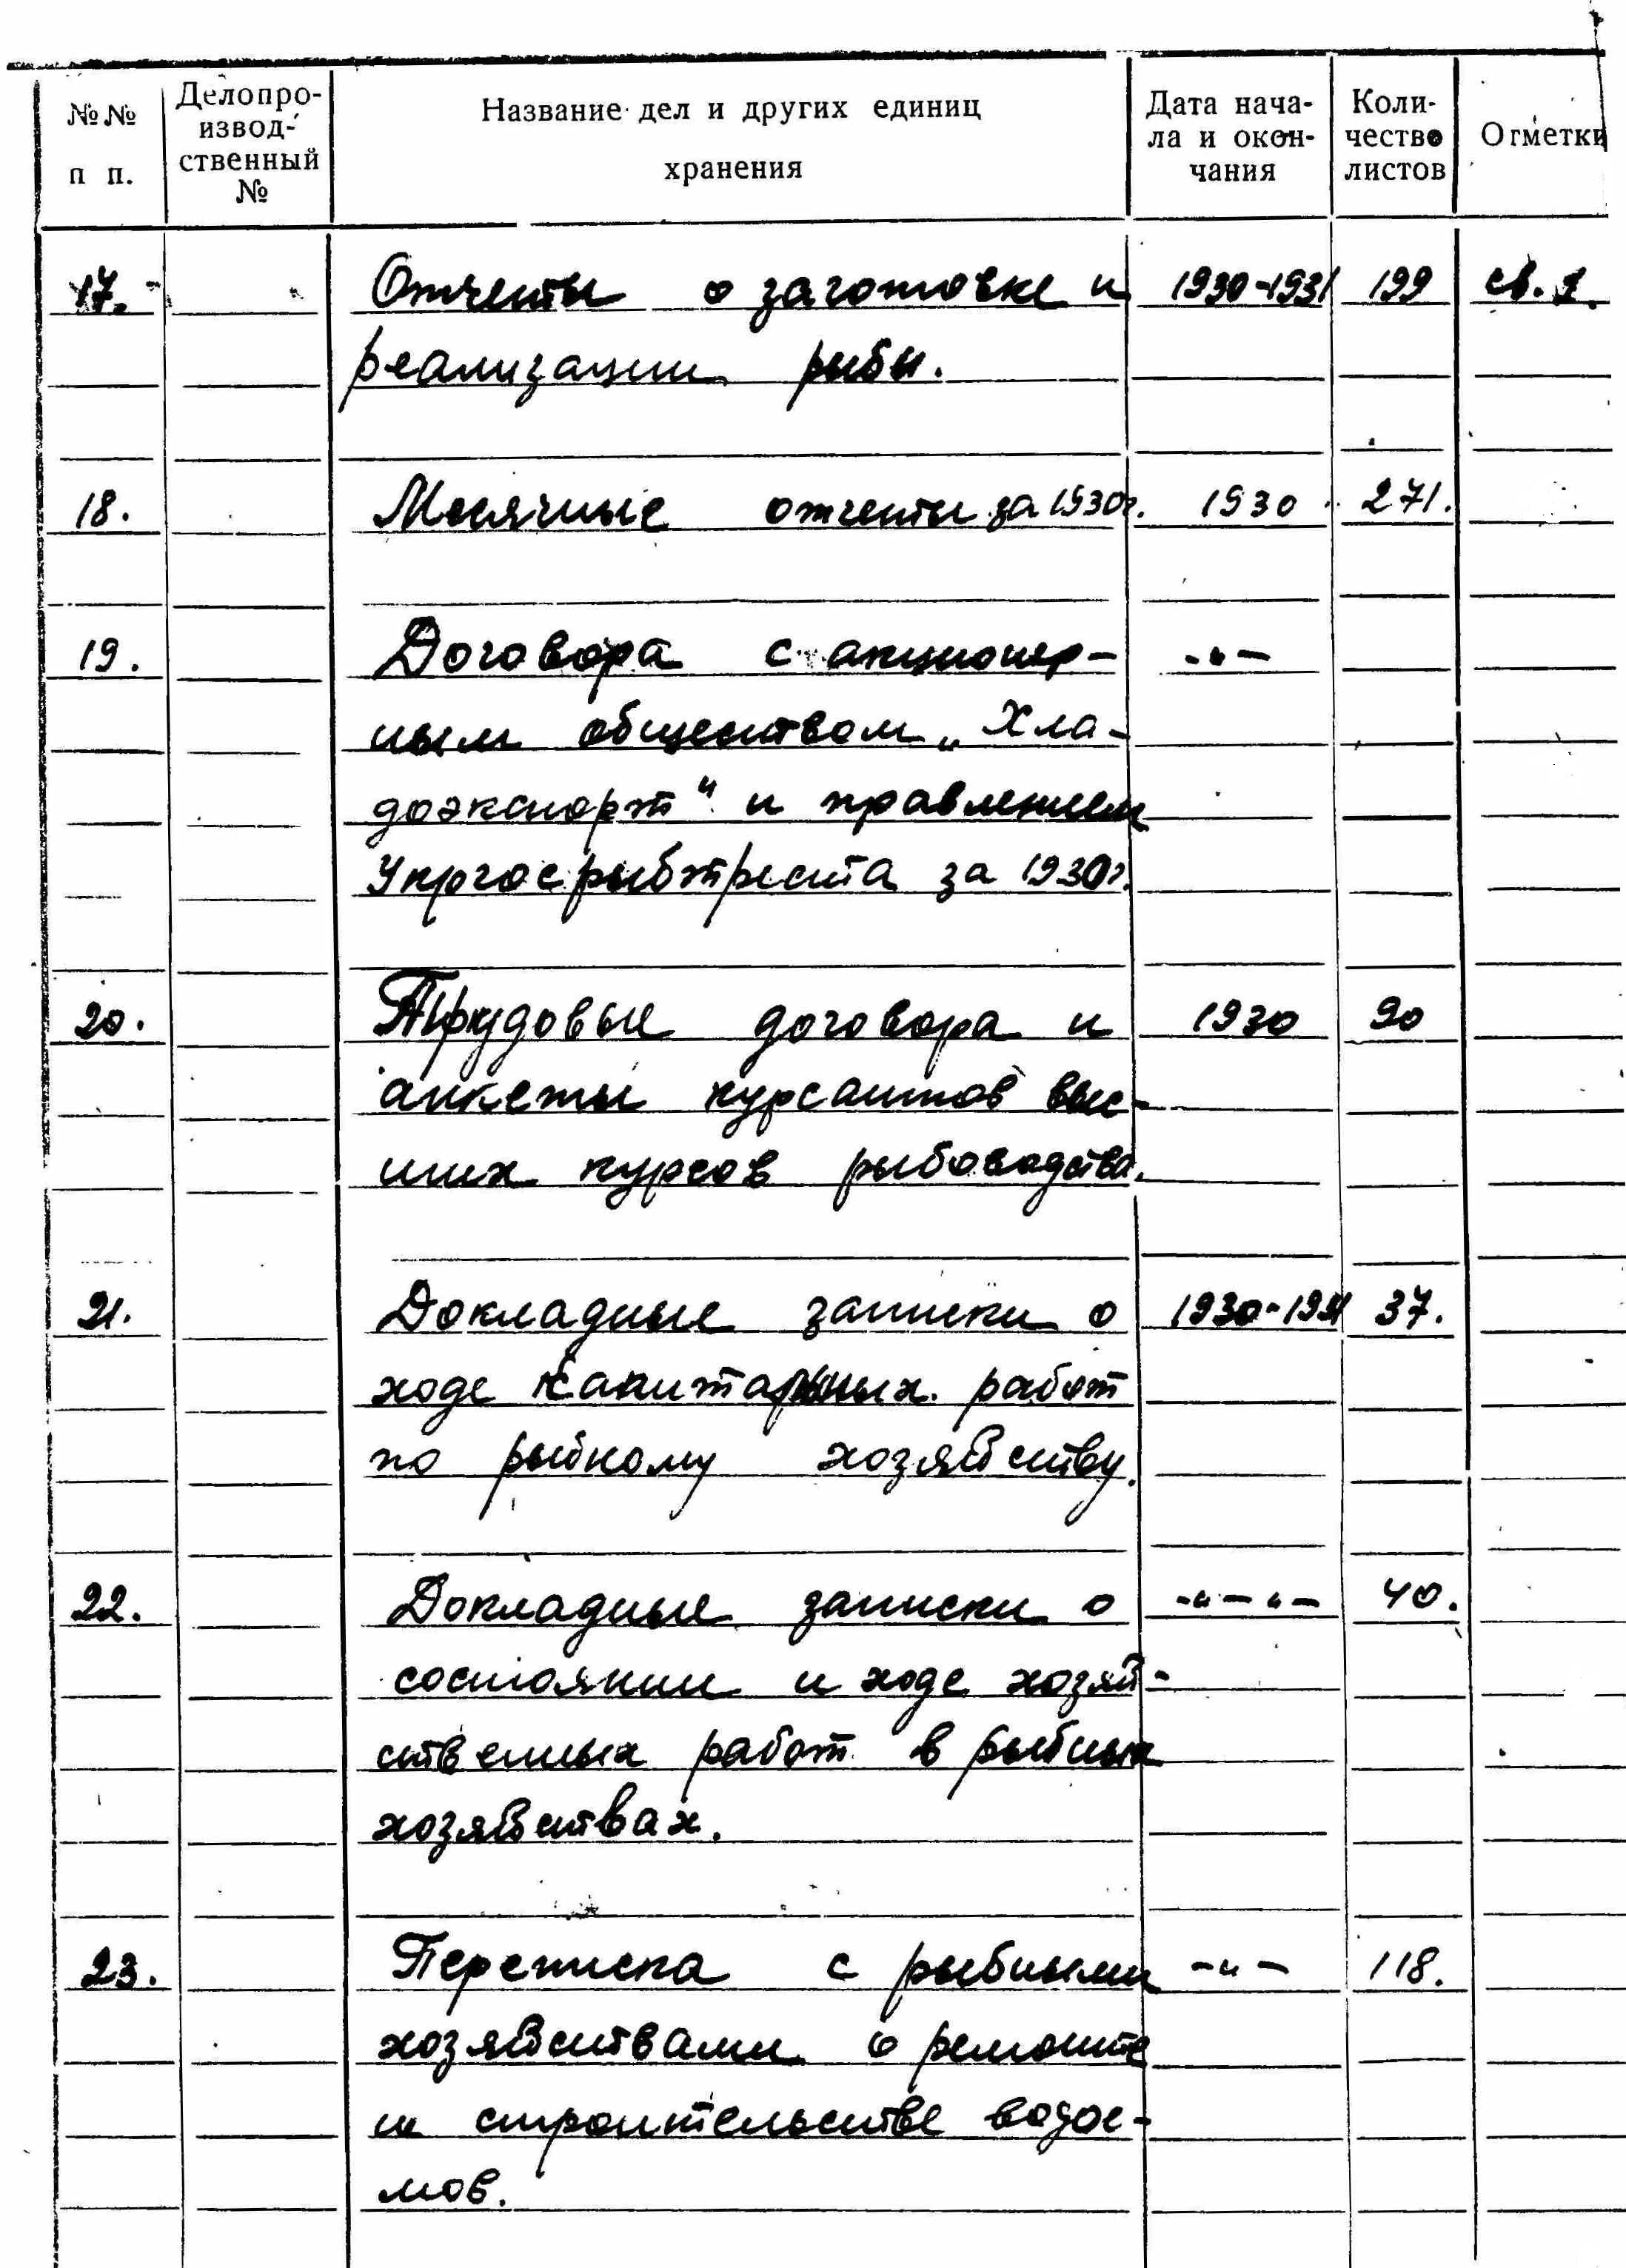 №№ п п.
Делопро-
извод-
ственный
№
Название дел и других единиц
хранения
Дата нача-
ла и окон-
чания
Коли-
чество
листов
Отметки
17. Отчеты о заготовке и 1930-1931 199 св.
реализации рыбы.
18. Месячные отчеты за 1930г. 1930 271.
19. Договора с акционер- -"-
ным обществом „Хла-
доэкспорт" и правлением
Укргосрыбтреста за 1930г.
20. Трудовые договора и 1930 90
анкеты курсантов выс-
ших курсов рыбоводства.
21. Докладные записки о 1930-1931 37.
ходе санитарных работ
по рыбному хозяйству.
22. Докладные записки о -"-"- 40.
состоянии и ходе хозяй-
ственных работ в рыбных
хозяйствах.
23. Переписка с рыбными -"- 118.
хозяйствами о ремонте
и строительстве водое-
мов.